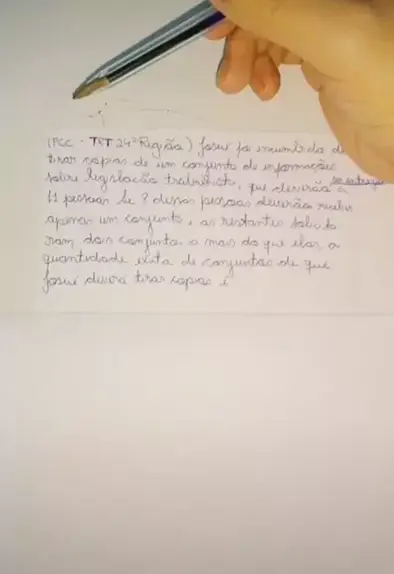 (FCC - TRT 24ª Região) Josué foi incumbido de
tirar cópias de um conjunto de informações
sobre legislação trabalhista, que deverão ser entregue a
11 pessoas. Se 8 dessas pessoas deverão receber
apenas um conjunto, as restantes
dois conjuntos a mais do que elas, a
quantidade exata de conjuntos de que
Josué deverá tirar cópias é